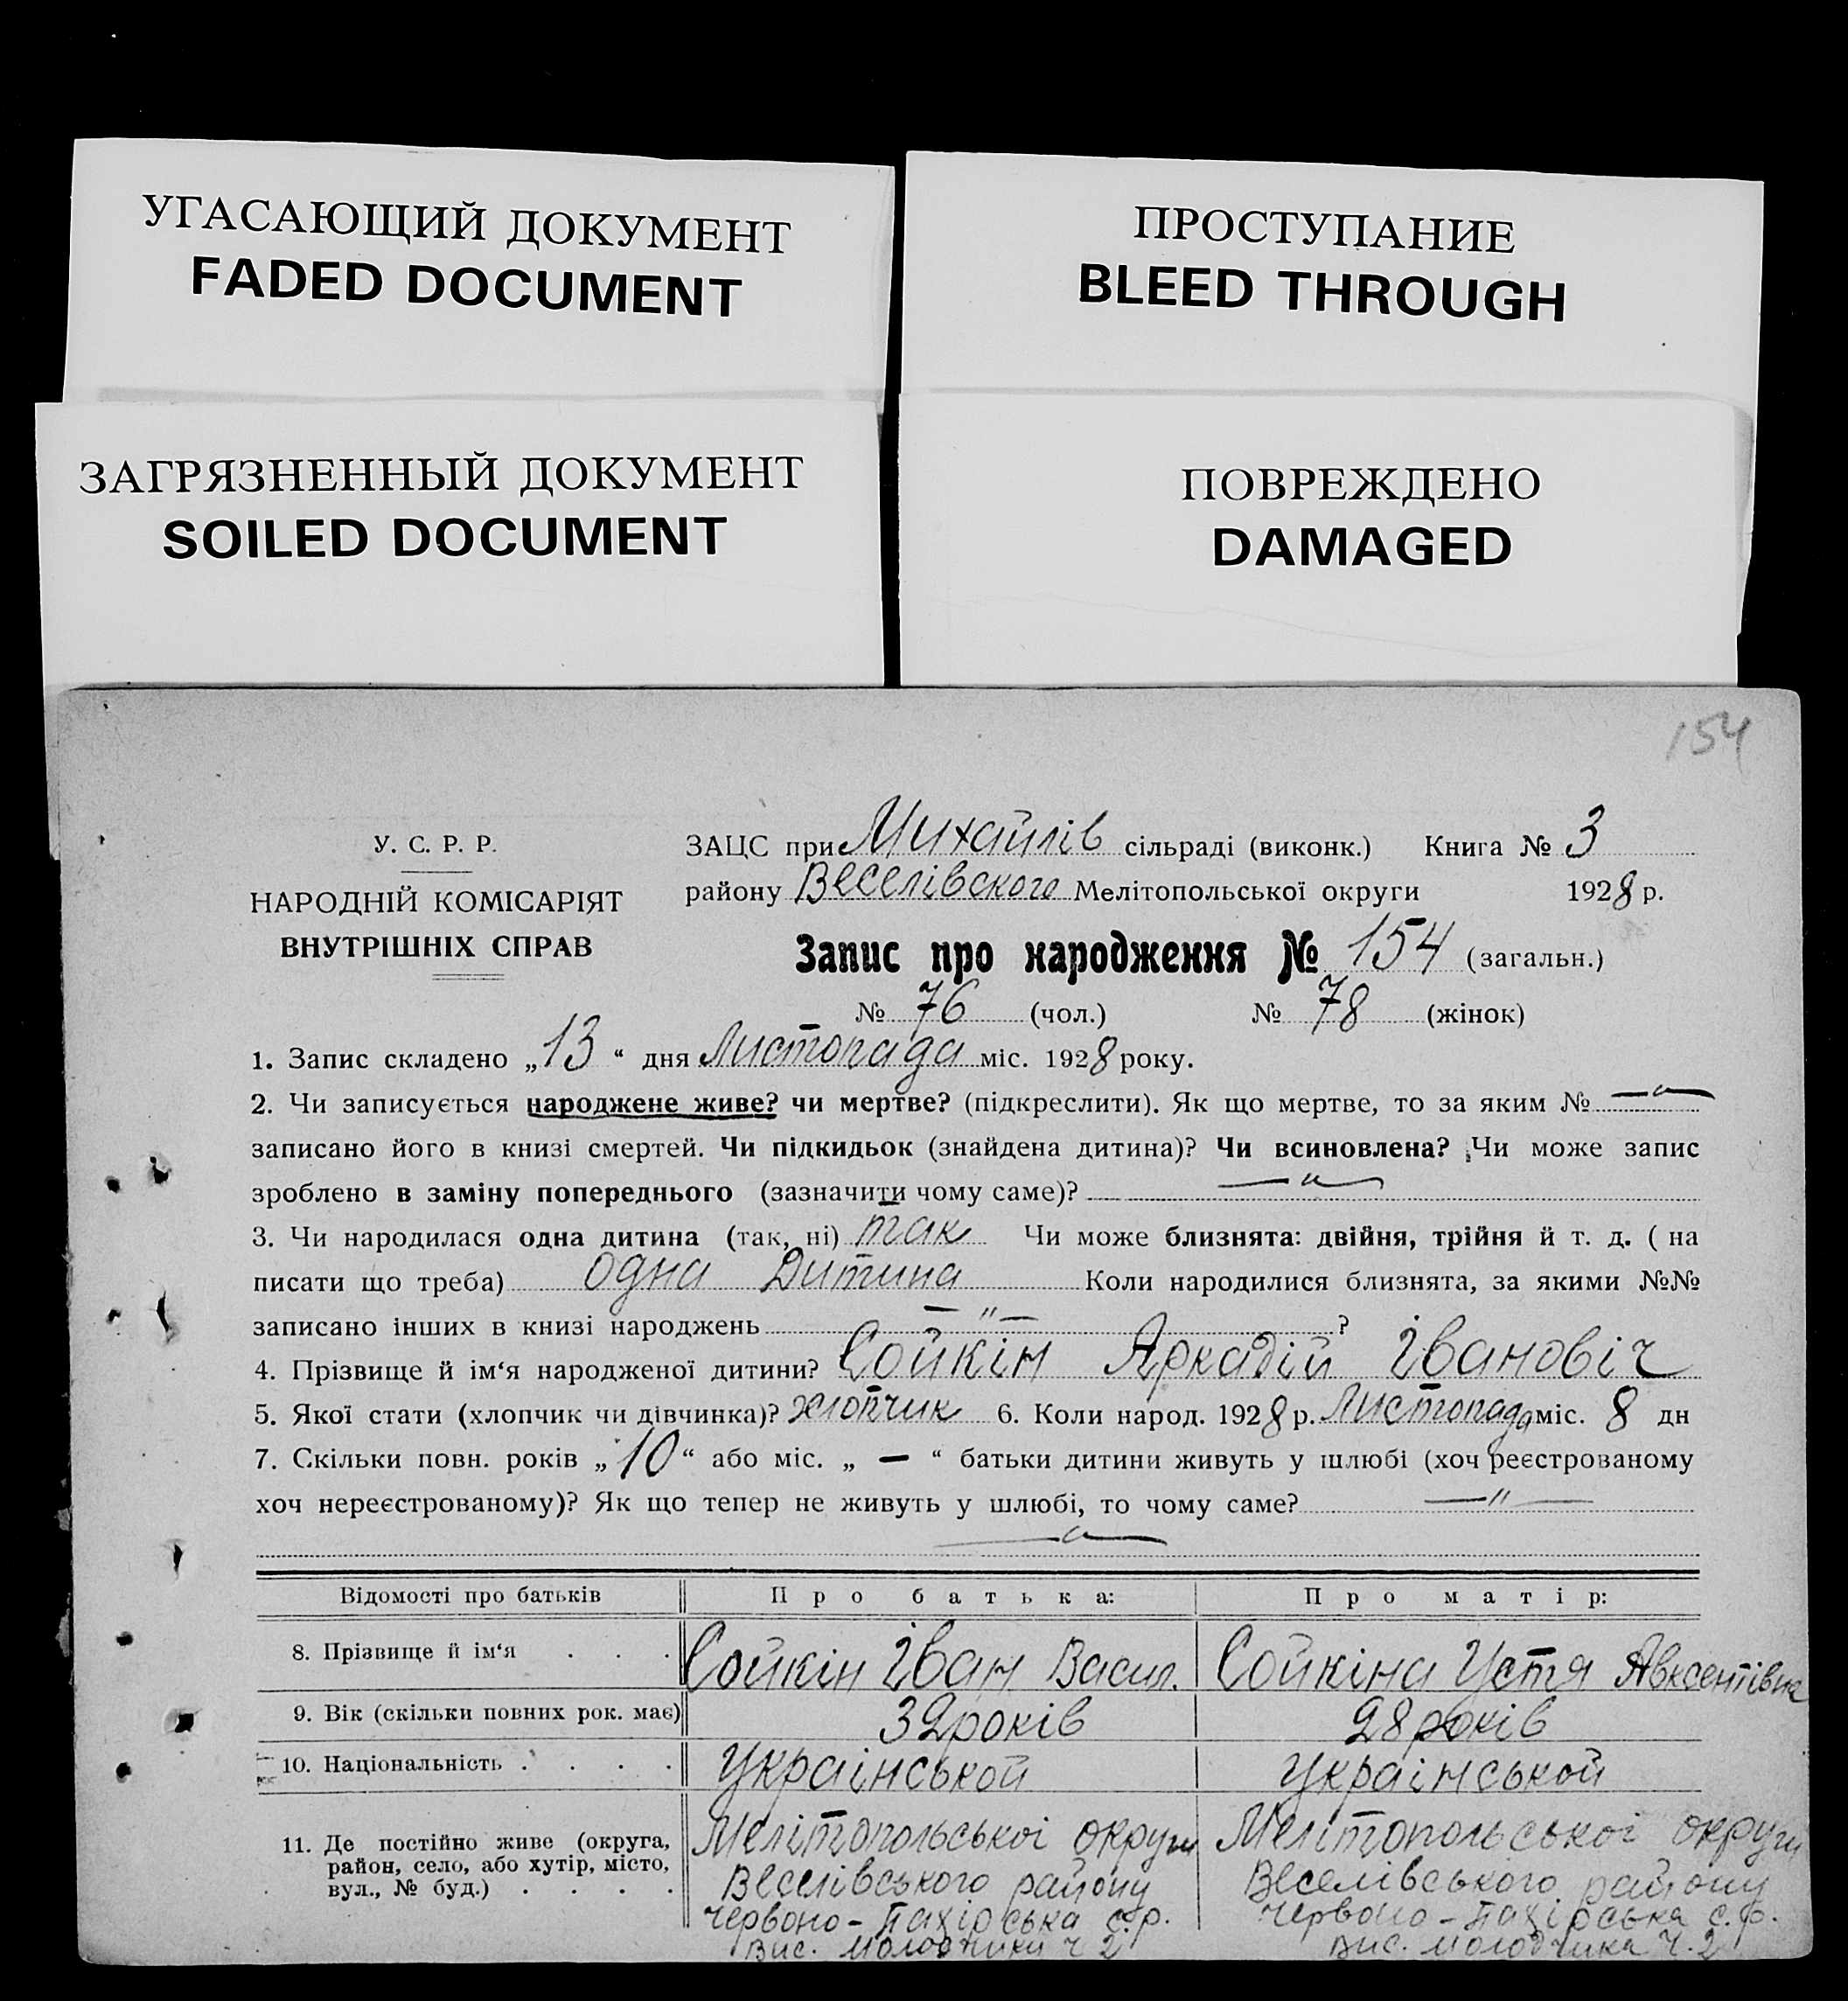 УГАСАЮЩИЙ ДОКУМЕНТ
FADED DOCUMENT
ПРОСТУПАНИЕ
BLEED THROUGH
ЗАГРЯЗНЕННЫЙ ДОКУМЕНТ
SOILED DOCUMENT
ПОВРЕЖДЕНО
DAMAGED
154
У. С. Р. Р.
НАРОДНІЙ КОМІСАРІЯТ
ВНУТРІШНІХ СПРАВ
ЗАЦС при Михайлів сільраді (виконк.) Книга № 3
району Веселівского Мелітопольської округи 1928 р.
Запис про народження № 154 (загальн.)
№ 76 (чол.) № 78 (жінок)
1. Запис складено „13“ дня Листопада міс. 1928 року.
2. Чи записується народжене живе? чи мертве? (підкреслити). Як що мертве, то за яким № —"—
записано його в книзі смертей. Чи підкидьок (знайдена дитина)? Чи всиновлена? Чи може запис
зроблено в заміну попереднього (зазначити чому саме)? —"—
3. Чи народилася одна дитина (так, ні) так Чи може близнята: двійня, трійня й т. д. ( на
писати що треба) одна Дитина Коли народилися близнята, за якими №№
записано інших в книзі народжень —"— ?
4. Прізвище й ім‘я народженої дитини? Сойкін Аркадій Івановіч
5. Якої стати (хлопчик чи дівчинка)? хлопчик 6. Коли народ. 1928 р. Листопада міс. 8 дн
7. Скільки повн. років „10“ або міс. „—“ батьки дитини живуть у шлюбі (хоч реєстрованому
хоч нереєстрованому)? Як що тепер не живуть у шлюбі, то чому саме? —"—
—"—
Відомості про батьків Про батька: Про матір:
8. Прізвище й ім‘я . . . Сойкін Іван Васил. Сойкіна Устя Авксентівна
9. Вік (скільки повних рок. має) 32 років 28 років
10. Національність . . . . Українськой Українськой
11. Де постійно живе (округа, район, село, або хутір, місто, вул., № буд.) . . . .
Мелітопольської округи
Веселівського району
Червоно-Пахірська с.р.
Вис. Молодчики ч 2
Мелітопольської округи
Веселівського району
Червоно-Пахірська с.р.
вис. Молодчика ч. 2